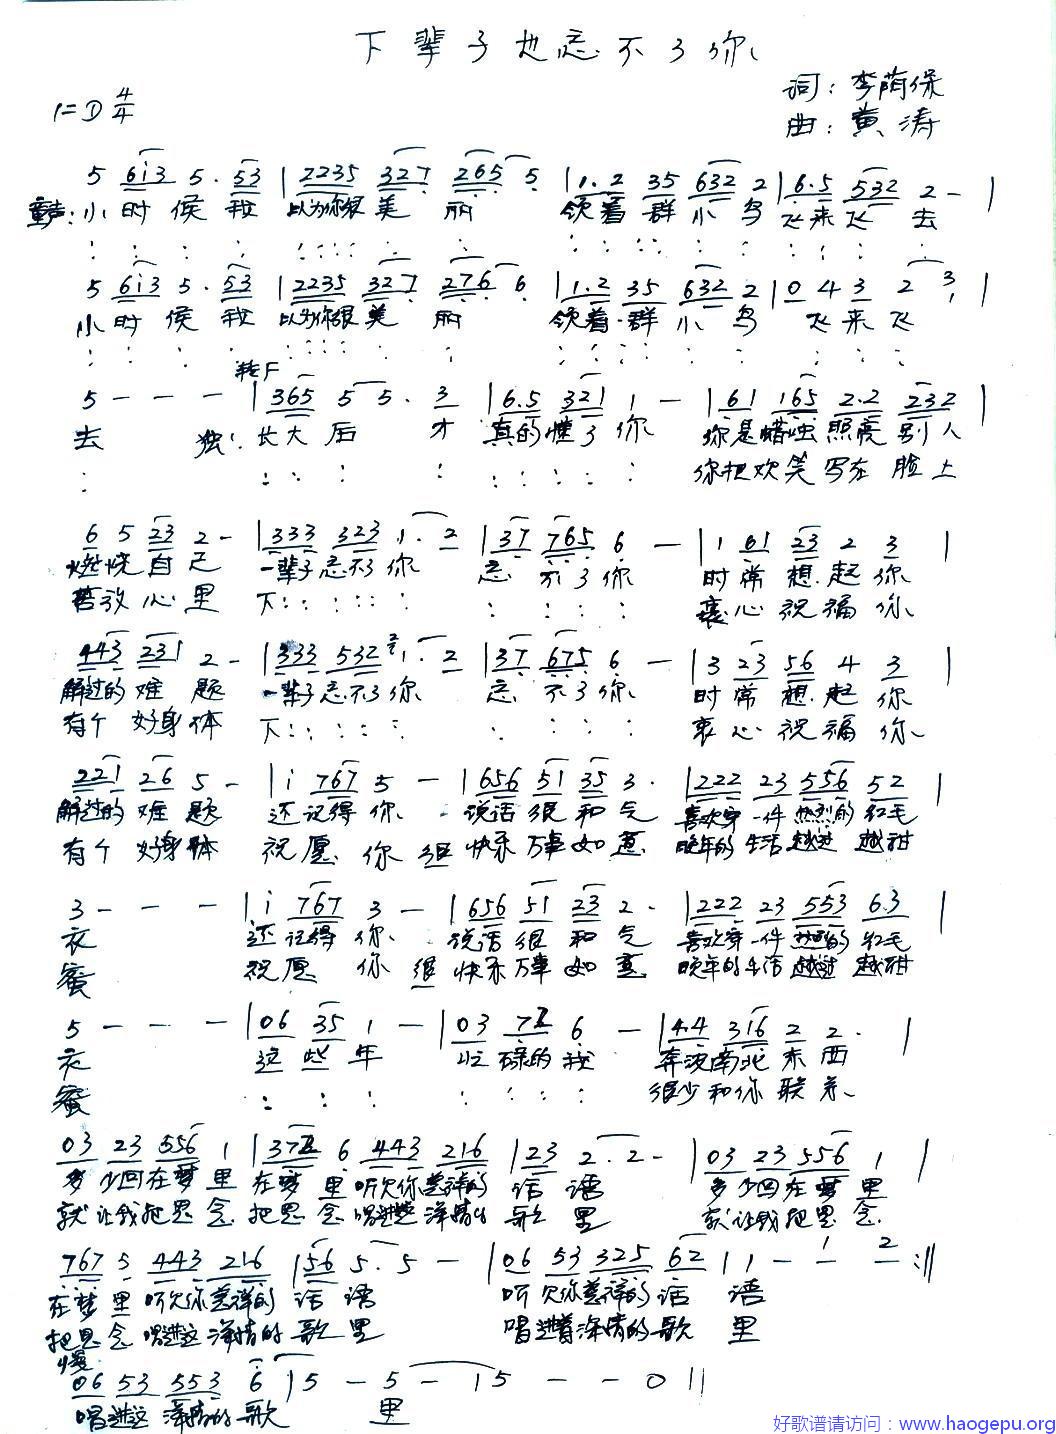 下辈子也忘不了你
词：李荫保
1=D 4/4
曲：黄涛
5 613 5. 53 | 2235 327 265 5 | 1.2 35 632 2 | 6.5 532 2 - |
童声：小时候我 以为你很美丽 领着群小鸟 飞来飞去
5 613 5. 53 | 2235 327 276 6 | 1.2 35 632 2 | 0 4 3 2 3 |
小时侯我 以为你很美丽 领着群小鸟 飞来飞
转F
5 - - - | 365 5 5. 3 | 6.5 321 1 - | 61 165 2.2 232 |
去 独：长大后才 真的懂了你 你是蜡烛照亮别人
你把欢笑写在脸上
6 5 23 2 - | 333 323 1. 2 | 37 765 6 - | 1 61 23 2 3 |
燃烧自己 一辈子忘不了你 忘不了你 时常想起你
苦放心里 下 衷心祝福你
443 231 2 - | 333 532 1. 2 | 37 675 6 - | 3 23 56 4 3 |
解过的难题 一辈子忘不了你 忘不了你 时常想起你
有个好身体 下 衷心祝福你
221 26 5 - | i 767 5 - | 656 51 35 3. | 222 23 556 52 |
解过的难题 还记得你 说话很和气 喜欢穿一件热烈的红毛
有个好身体 祝愿你 但快乐万事如意 晚年的生活越过越甜
3 - - - | i 767 3 - | 656 51 23 2. | 222 23 553 6.3 |
衣 还记得你 说话很和气 喜欢穿一件热烈的红毛
蜜 祝愿你 但快乐万事如意 晚年的生活越过越甜
5 - - - | 06 35 1 - | 03 72 6 - | 4.4 316 2 2. |
衣 这些年 忙碌的我 奔波南北东西
蜜 很少和你联系
03 23 556 1 | 372 6 443 216 | 23 2. 2 - | 03 23 556 1 |
多少回在梦里 在梦里听欠你慈祥的话语 多少回在梦里
就让我把思念 把思念唱进这深情的歌里 就让我把思念
767 5 443 216 | 56 5. 5 - | 06 53 325 62 | 1 1 - - :||
在梦里 听欠你慈祥的话语 听欠你慈祥的话语
把思念 唱进这深情的歌里 唱进着深情的歌里
慢
06 53 553 6 | 5 - 5 - | 5 - - 0 ||
唱进这深情的歌 里
好歌谱请访问：www.haogepu.org